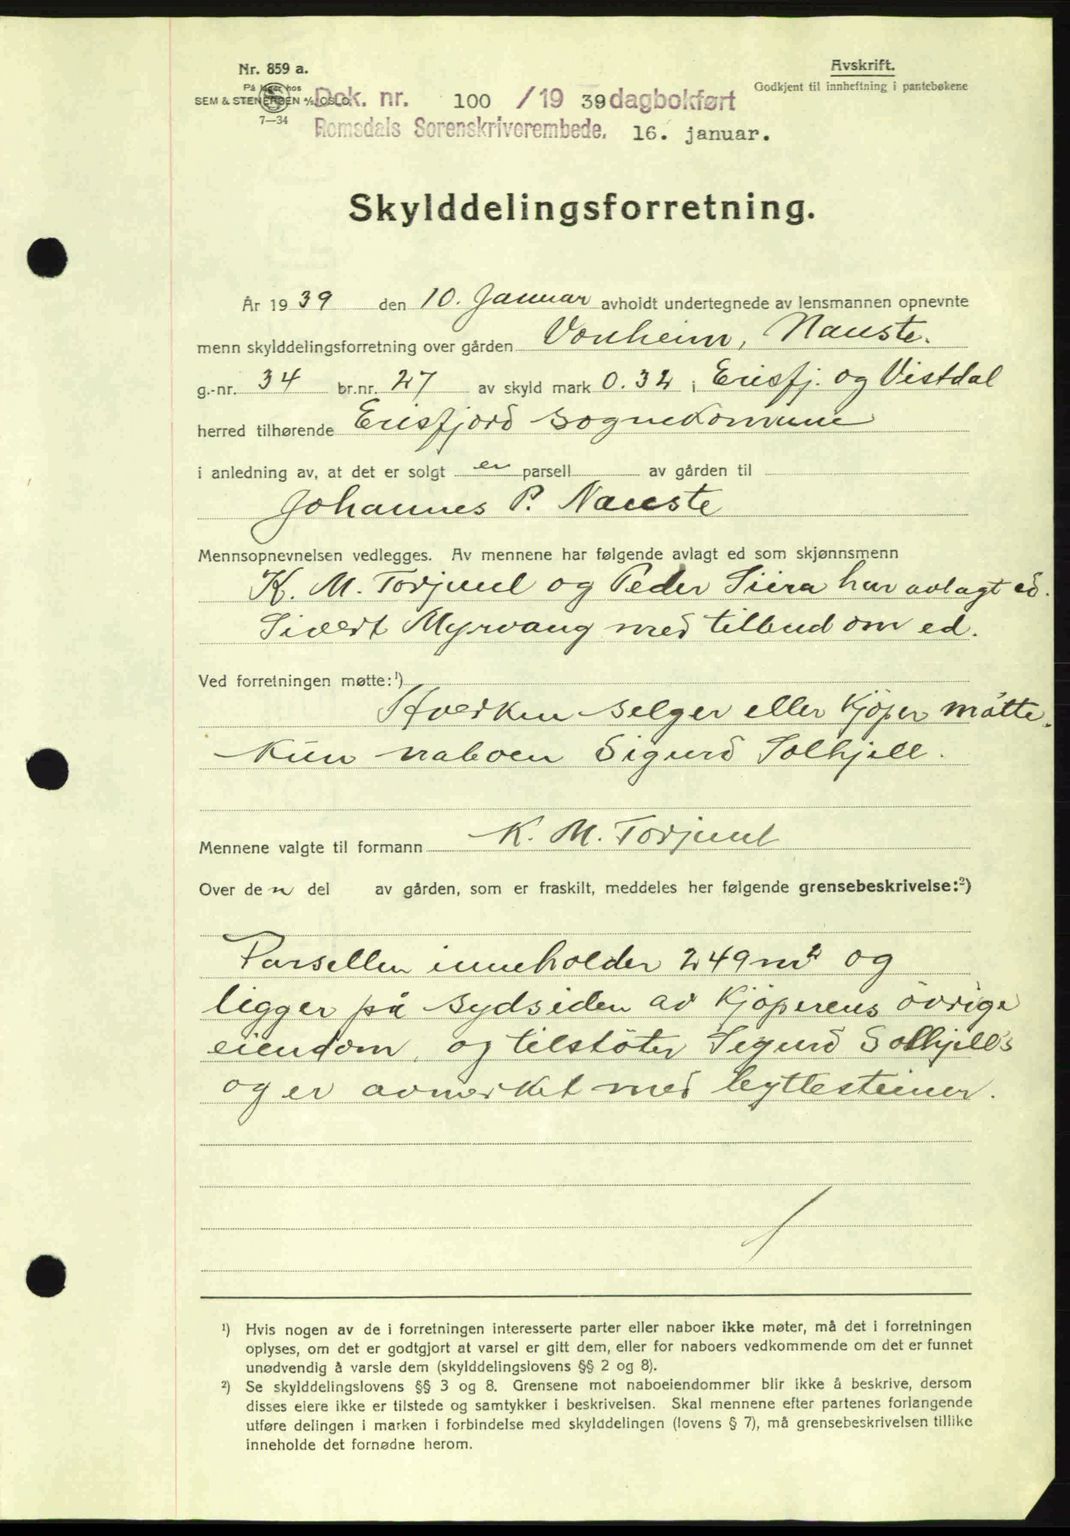 Nr. 859 a.
På lager hos
SEM & STENERSEN A/S, OSLO.
7—34
Avskrift.
Godkjent til innheftning i pantebøkene
Dok. nr. 100 /19 39 dagbokført
Romsdals Sorenskriverembede. 16. januar.
Skylddelingsforretning.
År 19 39 den 10. Januar avholdt undertegnede av lensmannen opnevnte
menn skylddelingsforretning over gården Vonheim, Nauste.
g.-nr. 34 br.nr. 27 av skyld mark 0.32 i Erisfj. og Vistdal
herred tilhørende Erisfjord sognekomune
i anledning av, at det er solgt en parsell av gården til
Johannes P. Nauste
Mennsopnevnelsen vedlegges. Av mennene har følgende avlagt ed som skjønnsmenn
K. M. Torjul og Peder Siira har avlagt ed.
Sivert Myrvang med tilbud om ed.
Ved forretningen møtte:¹)
Hverken selger eller kjöper mötte.
Kun naboen Sigurd Solhjell.
Mennene valgte til formann K. M. Torjul
Over de n del av gården, som er fraskilt, meddeles her følgende grensebeskrivelse:²)
Parsellen inneholder 249 m² og
ligger på sydsiden av kjöperens övrige
eiendom, og tilstöter Sigurd Solhjell's
og er avmerket med byttesteiner.
¹) Hvis nogen av de i forretningen interesserte parter eller naboer ikke møter, må det i forretningen
oplyses, om det er godtgjort at varsel er gitt dem, eller for naboers vedkommende om det er funnet
unødvendig å varsle dem (skylddelingslovens §§ 2 og 8).
²) Se skylddelingslovens §§ 3 og 8. Grensene mot naboeiendommer blir ikke å beskrive, dersom
disses eiere ikke er tilstede og samtykker i beskrivelsen. Skal mennene efter partenes forlangende
utføre delingen i marken i forbindelse med skylddelingen (lovens § 7), må grensebeskrivelsen tillike
inneholde det fornødne herom.